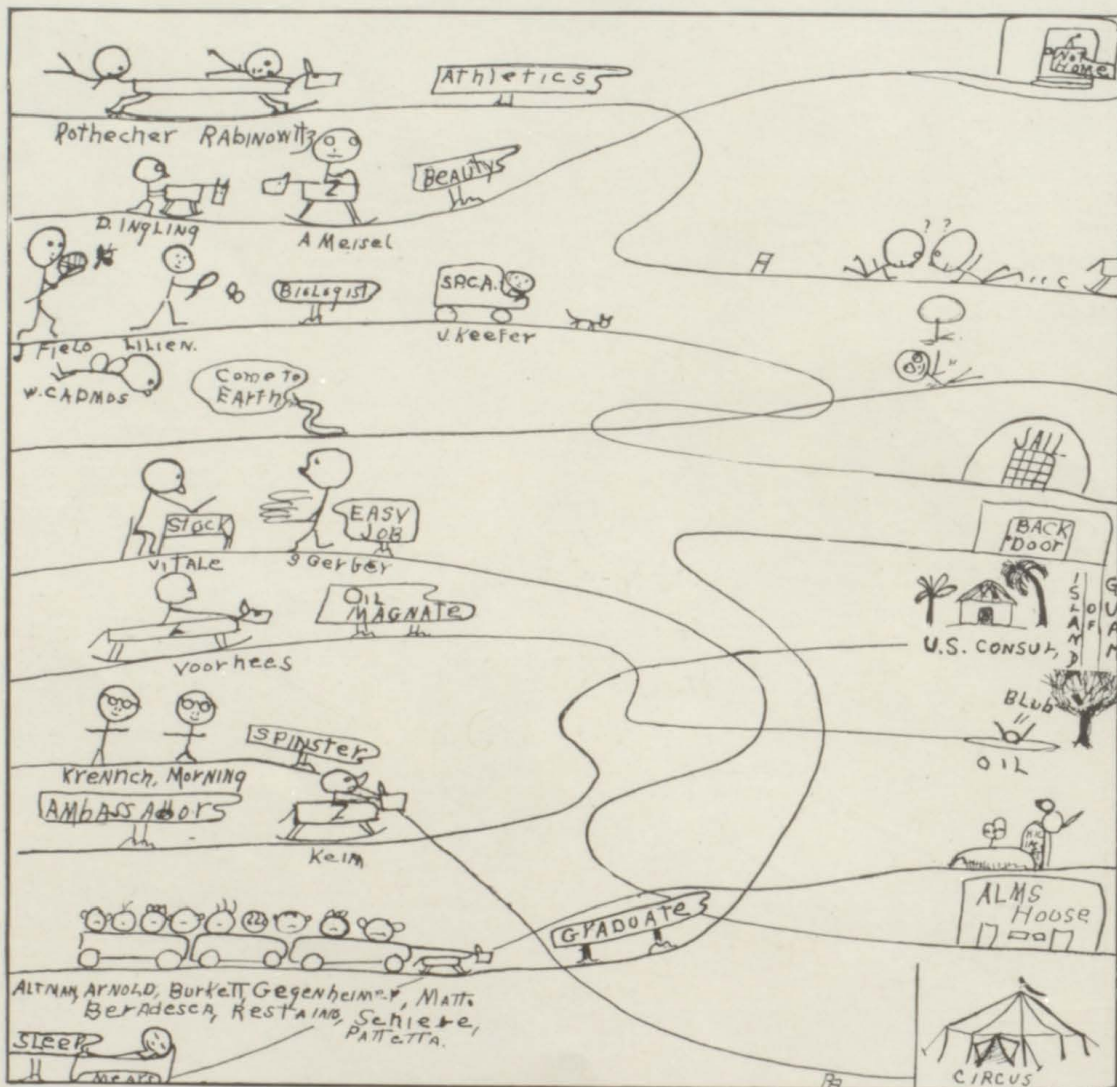 Athletics
NOT
HOME
Rothecher RABINOWITZ
BEAUTYS
Z
D. INGLING
A MEISEL
? ?
BIOLOGIST
S.P.C.A.
J FIELD LILIEN.
V. KEEFER
W. CADMOS
COME TO
EARTH
JAIL
STOCK
EASY
JOB
BACK
DOOR
VITALE
S GERGER
OIL
MAGNATE
ISLAND
OF
GUAM
U.S. CONSUL,
VOORHEES
BLUB
OIL
SPINSTER
KRENNCH, MORNING
AMBASSADORS
Z
KEIM
GRADUATE
ALMS
House
ALTMAN, ARNOLD, BURKETT, GEGENHEIMER, MATT.
BERADESCA, RESTAINO, SCHIERE,
PATTETTA.
SLEEP
MEARS
CIRCUS